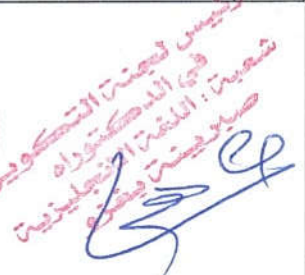 رئيس لجنة التكوين
في الدكتوراه
شعبة: اللغة الإنجليزية
صبرينة